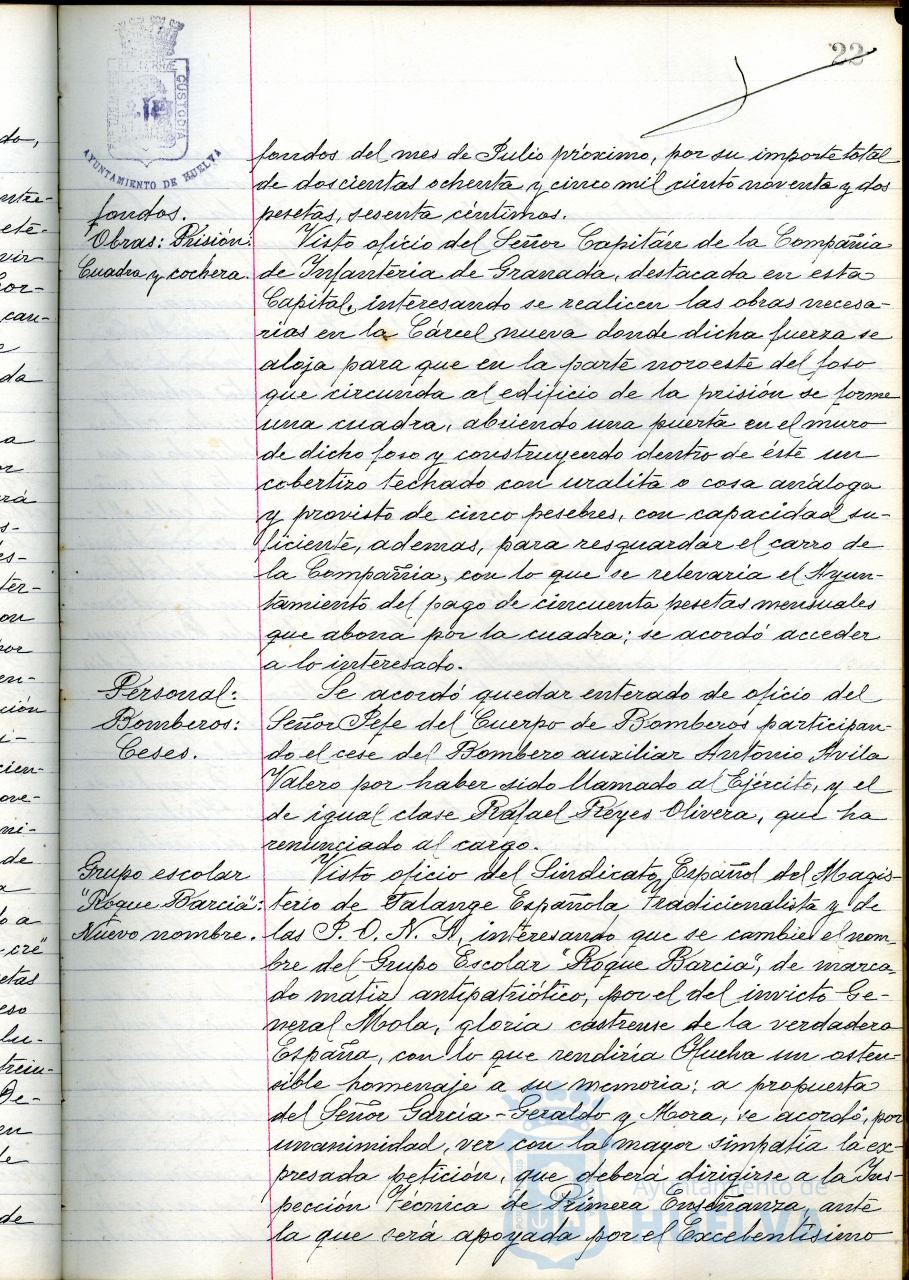 22
TERRÆ
CUSTODIA
AYUNTAMIENTO DE HUELVA
fondos del mes de Julio próximo, por su importe total
de doscientas ochenta y cinco mil ciento noventa y dos
fondos.
pesetas, sesenta céntimos.
Obras: Prisión:
Cuadra y cochera.
Visto oficio del Señor Capitán de la Compañia
de Infanteria de Granada, destacada en esta
Capital, interesando se realicen las obras necesa-
rias en la Cárcel nueva donde dicha fuerza se
aloja para que en la parte noroeste del foso
que circunda al edificio de la prisión se forme
una cuadra, abriendo una puerta en el muro
de dicho foso y construyendo dentro de éste un
cobertizo techado con uralita o cosa análoga
y provisto de cinco pesebres, con capacidad su-
ficiente, ademas, para resguardar el carro de
la Compañia, con lo que se relevaria el Ayun-
tamiento del pago de cincuenta pesetas mensuales
que abona por la cuadra; se acordó acceder
a lo interesado.
Personal:
Bomberos:
Ceses.
Se acordó quedar enterado de oficio del
Señor Jefe del Cuerpo de Bomberos participan-
do el cese del Bombero auxiliar Antonio Avila
Valero por haber sido llamado al Ejército, y el
de igual clase Rafael Reyes Olivera, que ha
renunciado al cargo.
Grupo escolar
"Roque Barcia":
Nuevo nombre.
Visto oficio del Sindicato Español del Magis-
terio de Falange Española Tradicionalista y de
las J. O. N. S, interesando que se cambie el nom-
bre del Grupo Escolar "Roque Barcia", de marca-
do matiz antipatriótico, por el del invicto Ge-
neral Mola, gloria castrense de la verdadera
España, con lo que rendiría un osten-
sible homenaje a su memoria; a propuerta
del Señor García-Geraldo y Mora, se acordó, por
unanimidad, ver con la mayor simpatía la ex-
presada petición, que deberá dirigirse a la Ins-
pección Técnica de Primera Enseñanza, ante
la que será apoyada por el Excelentísimo
Ayuntamiento de
HUELVA